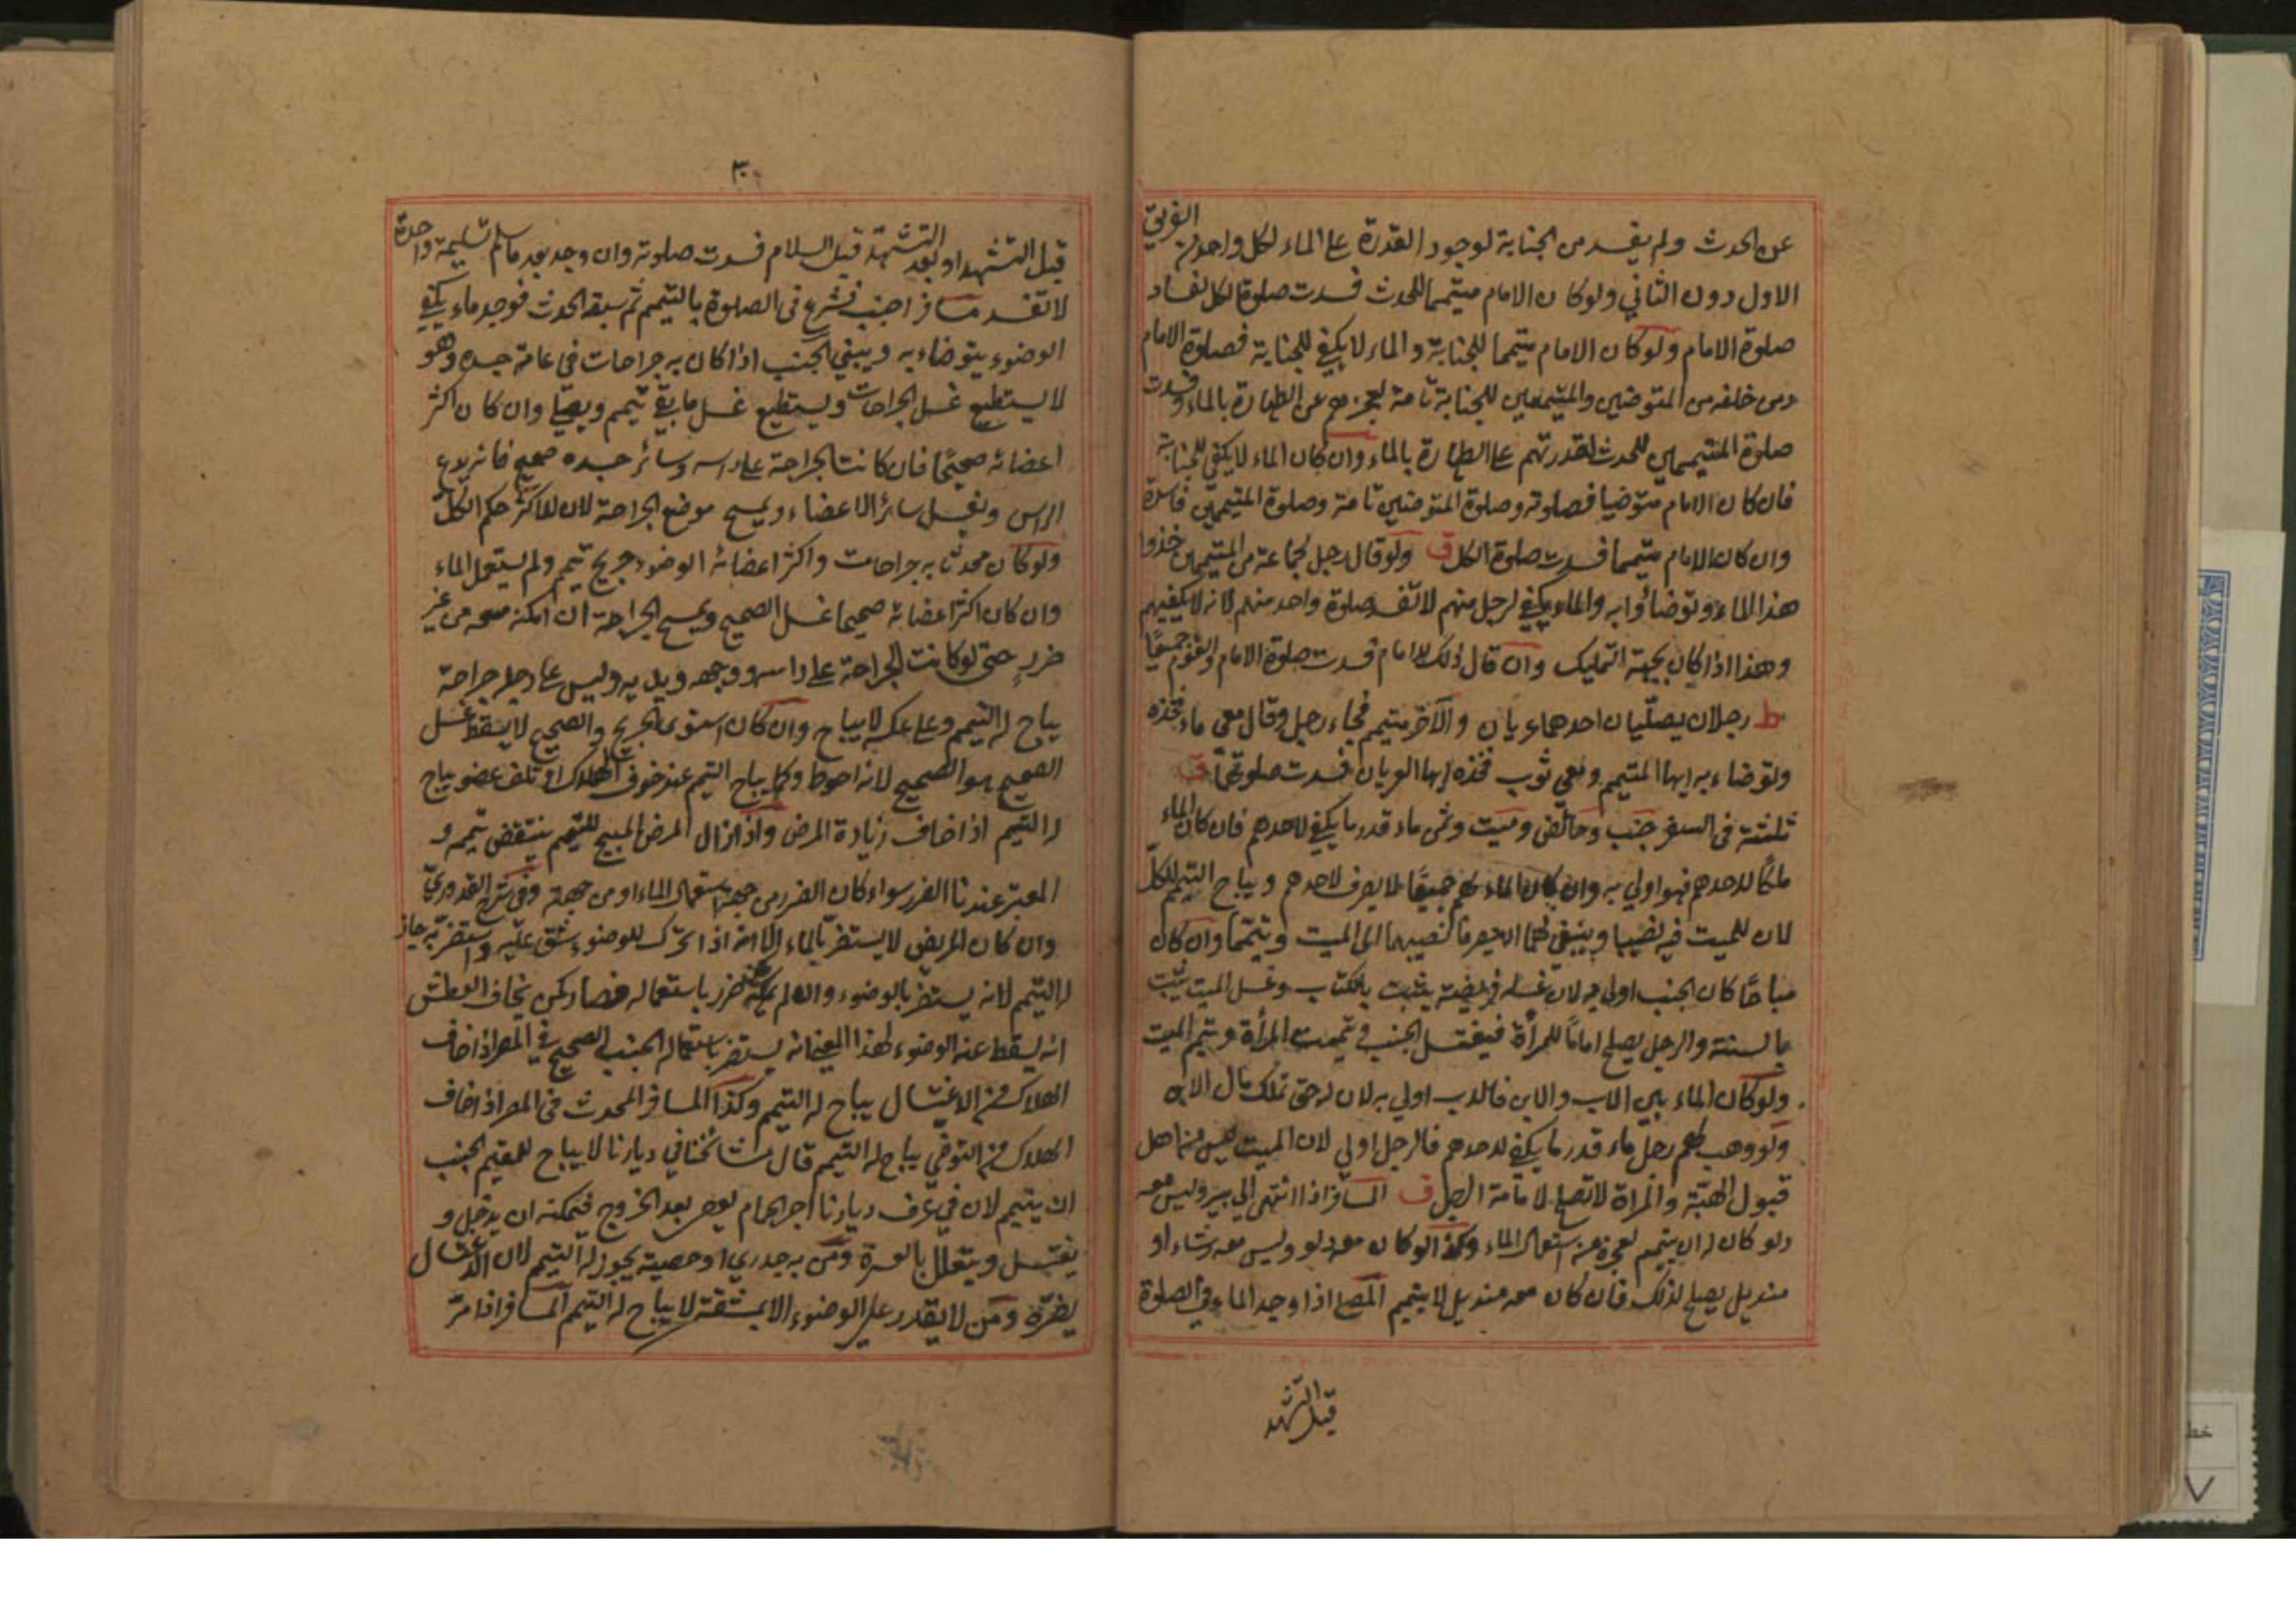 عن الحدث ولم يفسد من الجنابة لوجود القدرة على الماء لكل واحد من الفريق
الاول دون الثاني ولو كان الامام متيمما للحدث فسدت صلوة الكل لفساد
صلوة الامام ولو كان الامام متيمما للجنابة والماء لا يكفي للجنابة فصلوة الامام
ومن خلفه من المتوضين والمتيممين للجنابة تامة لعجزهم عن الطهارة بالماء وفسدت
صلوة المتيممين للحدث لقدرتهم على الطهارة بالماء وان كان الماء لا يكفي للجنابة
فان كان الامام متوضيا فصلوته وصلوة المتوضين تامة وصلوة المتيممين فاسدة
وان كان الامام متيمما فسدت صلوة الكل ق ولو قال رجل لجماعة من المتيممين خذوا
هذا الماء وتوضاؤا به والماء يكفي لرجل منهم لا تفسد صلوة واحد منهم لانه لا يكفيهم
وهذا اذا كان بجهة التمليك وان قال ذلك للامام فسدت صلوة الامام والقوم جميعًا
ط رجلان يصلّيان احدهما عريان والآخر متيمم فجاء رجل وقال معي ماء فخذه
وتوضاء به ايها المتيمم ومعي ثوب فخذه ايها العريان فسدت صلوتهما ق
ثلثة في السفر جنب وحائض وميت وثمن ماء قدر ما يكفي لاحدهم فان كان الماء
ملكًا لاحدهم فهو اولي به وان كان الماء لهم جميعًا لا يصرف لاحدهم ويباح التيمم للكلّ
لان للميت فيه نصيبا وينبغي لهما ان يصرفا نصيبهما الى الميت ويتيمما وان كان
مباحًا كان الجنب اولي به لان غسله فريضة يثبت بالكتاب وغسل الميت يثبت
بالسنة والرجل يصلح امامًا للمرأة فيغتسل الجنب وتيممت المرأة ويتيمم الميت
ولو كان الماء بين الاب والابن فالاب اولي به لان له حق تملك مال الابن
ولو وهب لهم رجل ماء قدر ما يكفي لاحدهم فالرجل اولي لان الميت ليس من اهل
قبول الهبة والمراة لا تصلح لامامة الرجل ق المسافر اذا انتهى الي بير وليس معه
دلو كان له ان يتيمم لعجزه عن استعمال الماء وكذا لو كان معه دلو وليس معه رشاء او
منديل يصلح لذلك فان كان معه منديل لا يتيمم المصلي اذا وجد الماء في الصلوة
قبل التشهد
٣٠
قبل التشهد او بعد التشهد قبل السلام فسدت صلوته وان وجد بعد ما سلم تسليمة واحدة
لا تفسد مسافر اجنب فشرع في الصلوة بالتيمم ثم سبقه الحدث فوجد ماء يكفي
الوضوء يتوضاء به ويبقي الجنب اذا كان به جراحات في عامة جسده وهو
لا يستطيع غسل الجراحات ويستطيع غسل ما بقي تيمم ويصلي وان كان اكثر
اعضائه صحيحًا فان كانت الجراحة على راسه وسائر جسده صحيح فانه يدع
الراس ويغسل سائر الاعضاء ويمسح موضع الجراحة لان للاكثر حكم الكل
ولو كان محدثا به جراحات واكثر اعضائه الوضوء جريح تيمم ولم يستعمل الماء
وان كان اكثر اعضائه صحيحا غسل الصحيح ويمسح الجراحة ان امكنه مسحه من غير
ضررٍ حتى لو كانت الجراحة على راسه ووجهه ويديه وليس على رجله جراحة
يباح له التيمم وعلى عكسه لا يباح وان كان استوى الجريح والصحيح لا يسقط غسل
الصحيح هو الصحيح لانه احوط وكما يباح التيمم عند خوف الهلاك او تلف عضو يباح
له التيمم اذا خاف زيادة المرض واذا زال المرض المبيح للتيمم ينتقض تيممه و
المعتبر عندنا الضرر سواء كان الضرر من جهة استعمال الماء او من جهة وفي شرح القدوريّ
وان كان المريض لا يستضر بالماء الا انه اذا تحرّك للوضوء يشق عليه ويستضر به جاز
له التيمم لانه يستضر بالوضوء وان لم يكن ضرر باستعماله فصار كمن يخاف العطش
انه يسقط عنه الوضوء لهذا المعنى انه يستضر باستعماله الجنب الصحيح في المصر اذا خاف
الهلاك من الاغتسال يباح له التيمم وكذا المسافر المحدث في المصر اذا خاف
الهلاك من التوضي يباح له التيمم قال مشائخنا في ديارنا لا يباح للمقيم الجنب
ان يتيمم لان في عرف ديارنا اجر الحمام يعطى بعد الخروج فيمكنه ان يدخل و
يغتسل ويتعلل بالعسرة ومن به جدري او حصبة يجوز له التيمم لان الاغتسال
يضرّه ومن لا يقدر على الوضوء الا بمشقة لا يباح له التيمم المسافر اذا مرّ
خط
٧